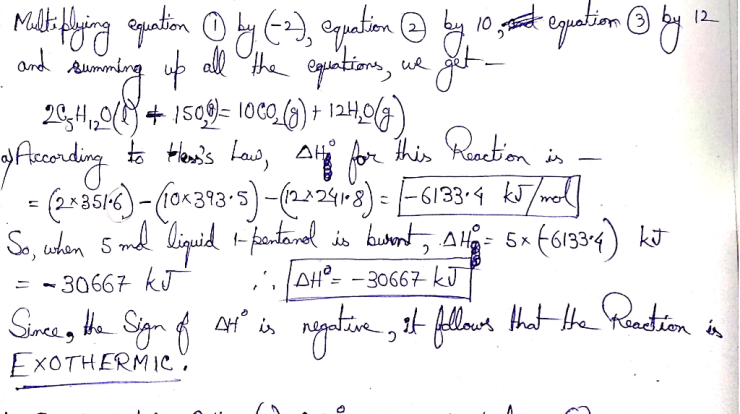 Multiplying equation ① by (-2), equation ② by 10, equation ③ by 12
and summing up all the equations, we get –
2C₅H₁₂O(l) + 15O₂(g) = 10CO₂(g) + 12H₂O(g)
a) According to Hess's Law, ΔH° for this Reaction is –
= (2×351.6) – (10×393.5) – (12×241.8) = -6133.4 kJ/mol
So, when 5 mol liquid 1-pentanol is burnt, ΔH° = 5×(-6133.4) kJ
= -30667 kJ ∴ ΔH° = -30667 kJ
Since, the Sign of ΔH° is negative, it follows that the Reaction is
EXOTHERMIC.